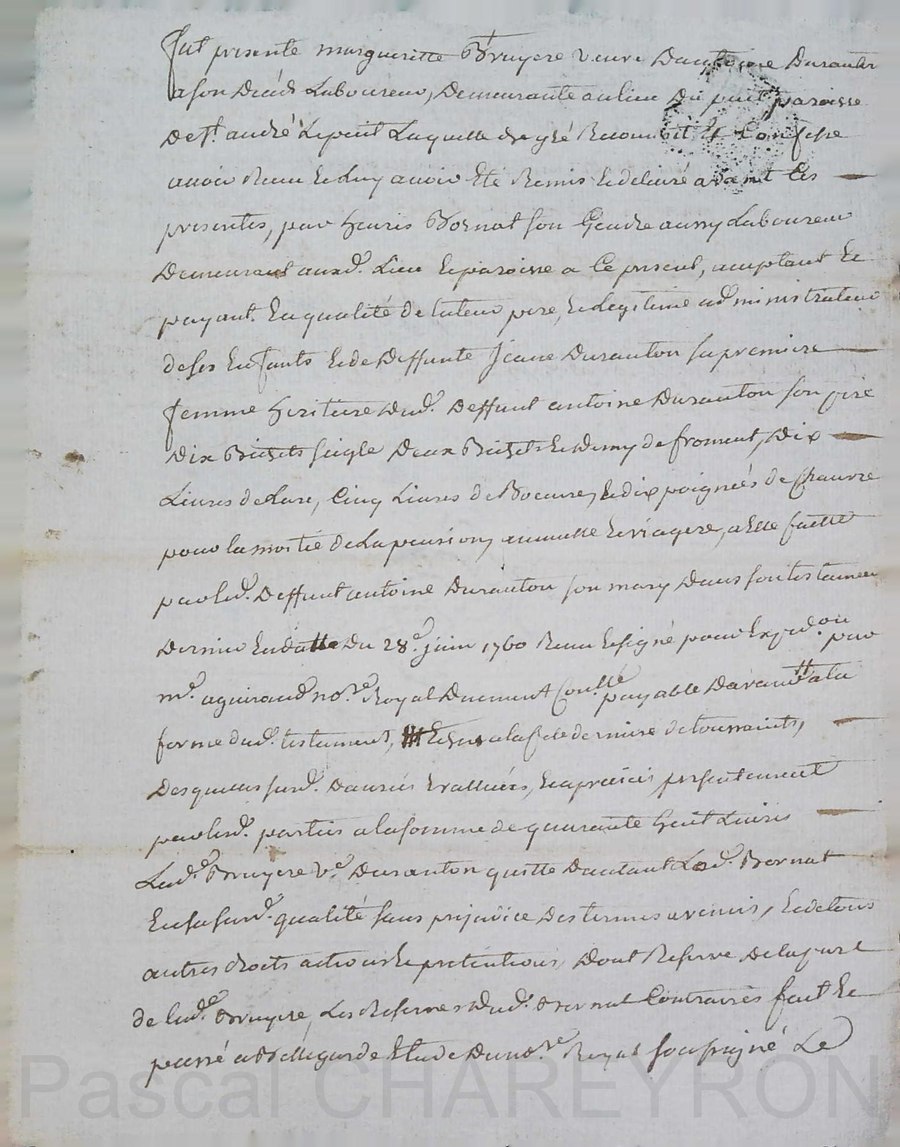 fut presente margueritte Bruyere veuve Dantoine Duranton
a son Decés Laboureur, Demeurante au lieu Du puit paroisse
De St. andré Lepuit Laquelle de gré Reconnoit Et Confesse
avoir Receu Et Luy avoir Eté Remis Et delivré avant Ces
presentes, par henris Bornat son Gendre aussy Laboureur
Demeurant auxd. Lieu Et paroisse a Ce present, acceptant Et
payant En qualité de tuteur pere, Et Legitime administrateur
de ses Enfants Et de Deffunte Jeane Duranton sa premiere
femme heritiere dud. Deffunt antoine Duranton son pere
Dix Bichets seigle Deux Bichets Et Demy de froment, Dix
Livres de Lard, Cinq Livres de Boeurre, Et dix poignées de Chanvre
pour la moitié de La pension, annuelle Et viagere, a Elle faitte
par led. Deffunt antoine Duranton son mary Dans son testament
Dernier En datte Du 28e. juin 1760 Receu Et signé pour Expedon par
me. aguiraud nore. Royal Duement Conllé payable Davance a la
forme dud. testament, Echus a la fete derniere de toussaints,
Desquelles surd. Danrées Evalluées, Et apreciées presentement
par lesd. parties a la somme de quarante huit Livres
Lad. Bruyere ve. Duranton quitte Dautant Led. Bornat
En sa surd. qualité sans prejudice Des termes avenir, Et de tous
autres droits actions Et pretentions, Dont Reserve De la part
de lad. Bruyere, Les Reserves dud. Bornat Contraires fait Et
passé a Bellegarde Etude Du nore. Royal soussigné Le
Pascal CHAREYRON